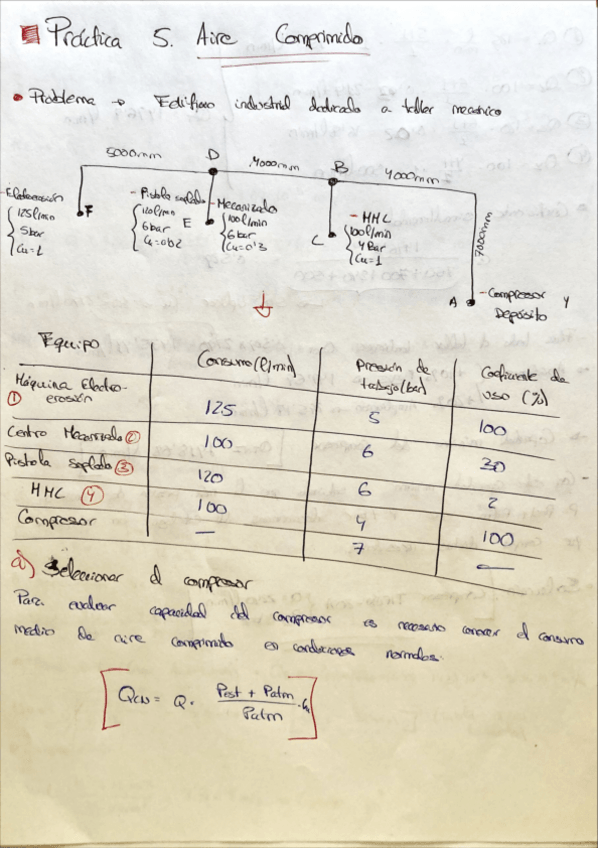 Práctica 5. Aire Comprimido
• Problema → Edificio industrial dedicado a taller mecánico
5000mm
D
4000mm
B
4000mm
7000mm
-Electroerosión
125l/min
5bar
Cu=1
F
- Pistola soplado
120l/min
6bar
Cu=0'02
E
- Mecanizado
100l/min
6bar
Cu=0'3
C
- MMC
100l/min
4Bar
Cu=1
A
- Compresor y
Depósito
↓
Equipo
Consumo (l/min)
Presión de
trabajo (bar)
Coeficiente de
uso (%)
Máquina Electro-
① erosión
125
5
100
Centro Mecanizado ②
100
6
30
Pistola Soplado ③
120
6
2
MMC ④
100
4
100
Compresor
—
7
—
a) Seleccionar el compresor
Para evaluar capacidad del compresor es necesario conocer el consumo
medio de aire comprimido en condiciones normales.
QCN = Q · Pest + Patm / Patm · Cu